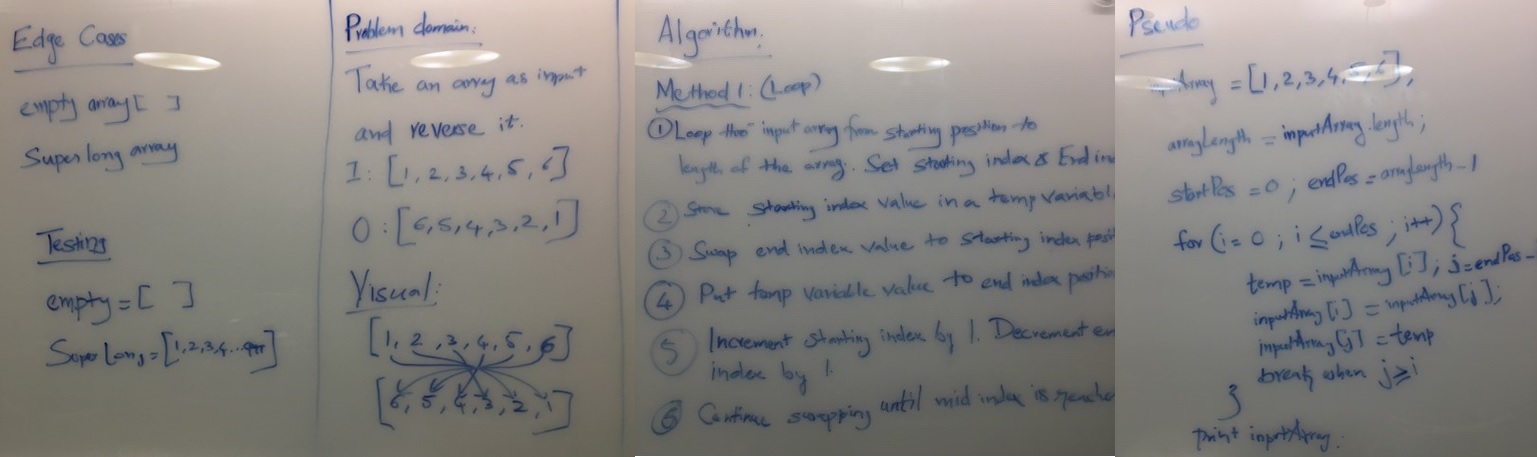 Edge Cases
empty array [ ]
Super long array
Testing
empty = [ ]
Super Long = [1,2,3,4...
Problem domain:
Take an array as input
and reverse it.
I: [1, 2, 3, 4, 5, 6]
O: [6, 5, 4, 3, 2, 1]
Visual:
[1, 2, 3, 4, 5, 6]
[6, 5, 4, 3, 2, 1]
Algorithm.
Method 1: (Loop)
① Loop thro' input array from starting position to
length of the array. Set starting index & End in
② Store starting index value in a temp variabl
③ Swap end index value to starting index posi
④ Put temp variable value to end index positio
⑤ Increment starting index by 1. Decrement en
index by 1.
⑥ Continue swapping until mid index is reache
Pseudo
inputArray = [1, 2, 3, 4, 5, 6],
arrayLength = inputArray.length;
startPos = 0 ; endPos = arraylength - 1
for (i = 0 ; i ≤ endPos ; i++) {
temp = inputArray [i]; j = endPos -
inputArray [i] = inputArray [j];
inputArray [j] = temp
break when j ≥ i
}
print inputArray.